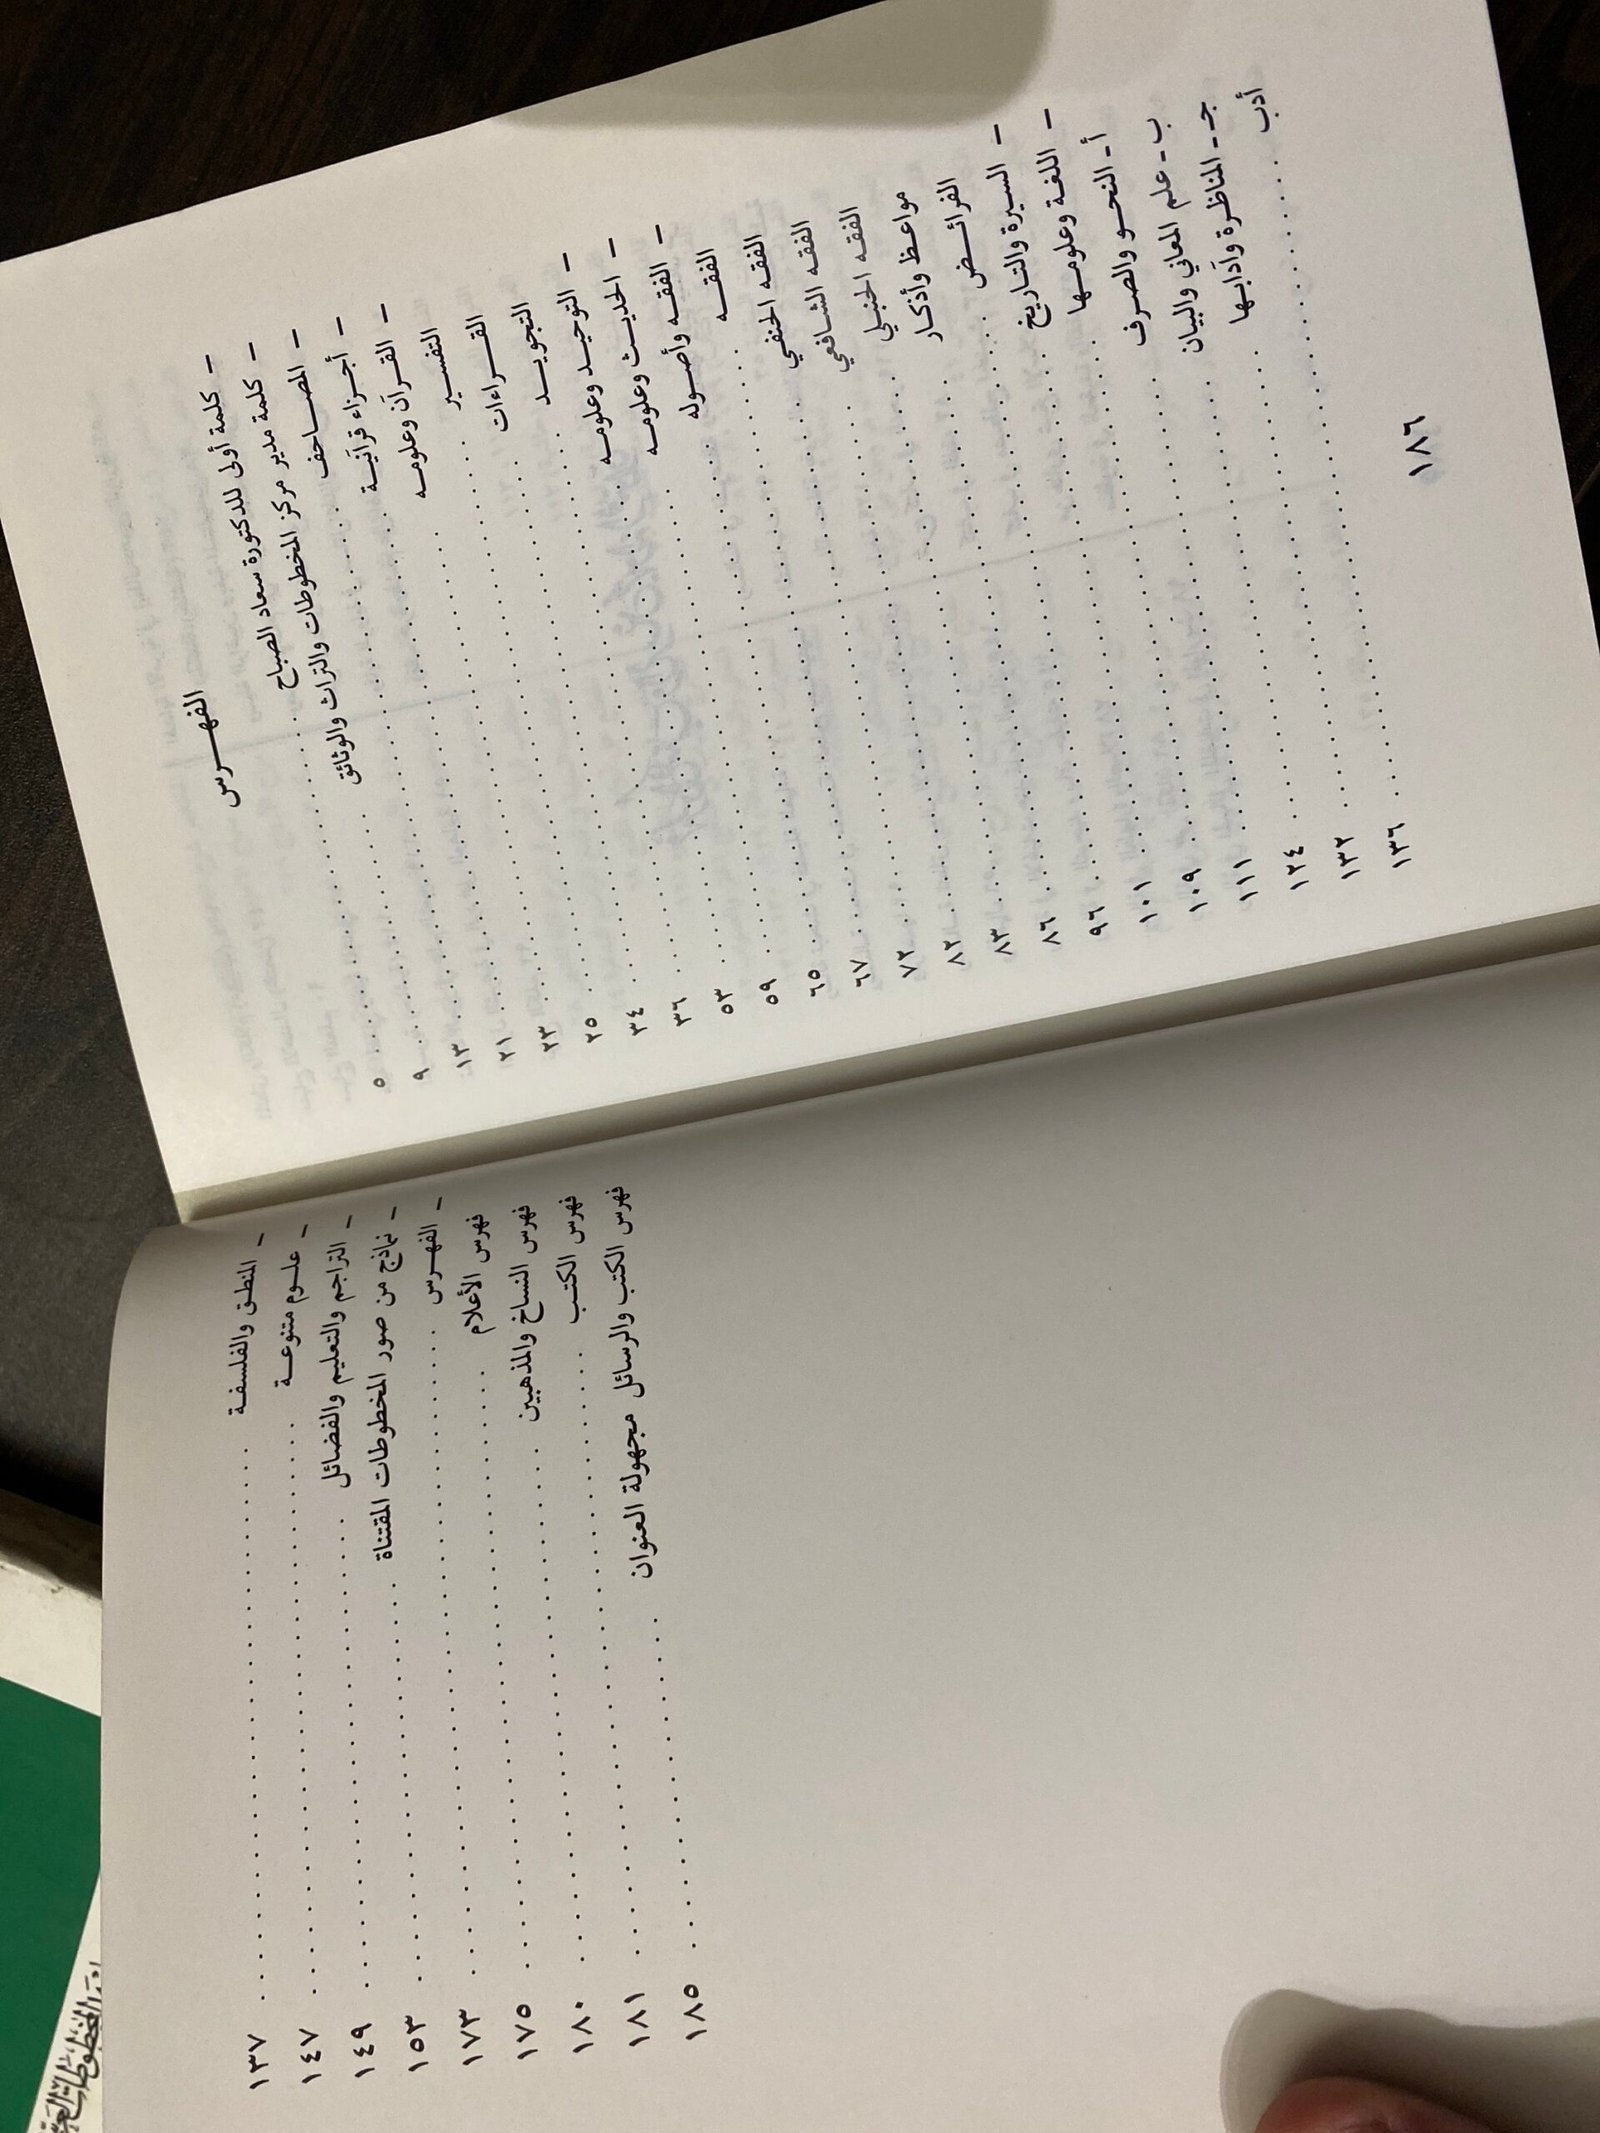 الفهـــرس
– كلمة أولى للدكتورة سعاد الصباح ٥
– كلمة مدير مركز المخطوطات والتراث والوثائق ٩
– المصاحف ١٣
– أجزاء قرآنية ٢١
– القرآن وعلومه ٢٣
التفسير ٢٥
القراءات ٣٤
التجويد ٣٦
– التوحيد وعلومه ٥٣
– الحديث وعلومه ٥٩
– الفقه وأصوله ٦٥
الفقه ٦٧
الفقه الحنفي ٧٢
الفقه الشافعي ٨٢
الفقه الحنبلي ٨٣
مواعظ وأذكار ٨٦
الفرائض ٩٦
– السيرة والتاريخ ١٠١
– اللغة وعلومها ١٠٩
أ - النحو والصرف ١١١
ب - علم المعاني والبيان ١٢٤
جـ - المناظرة وآدابها ١٣٢
أدب ١٣٦
١٨٦
– المنطق والفلسفة ١٣٧
– علوم متنوعة ١٤٧
– التراجم والتعليم والفضائل ١٤٩
– نماذج من صور المخطوطات المقتناة ١٥٣
– الفهرس ١٧٣
فهرس الأعلام ١٧٥
فهرس النساخ والمذهبين ١٨٠
فهرس الكتب ١٨١
فهرس الكتب والرسائل مجهولة العنوان ١٨٥